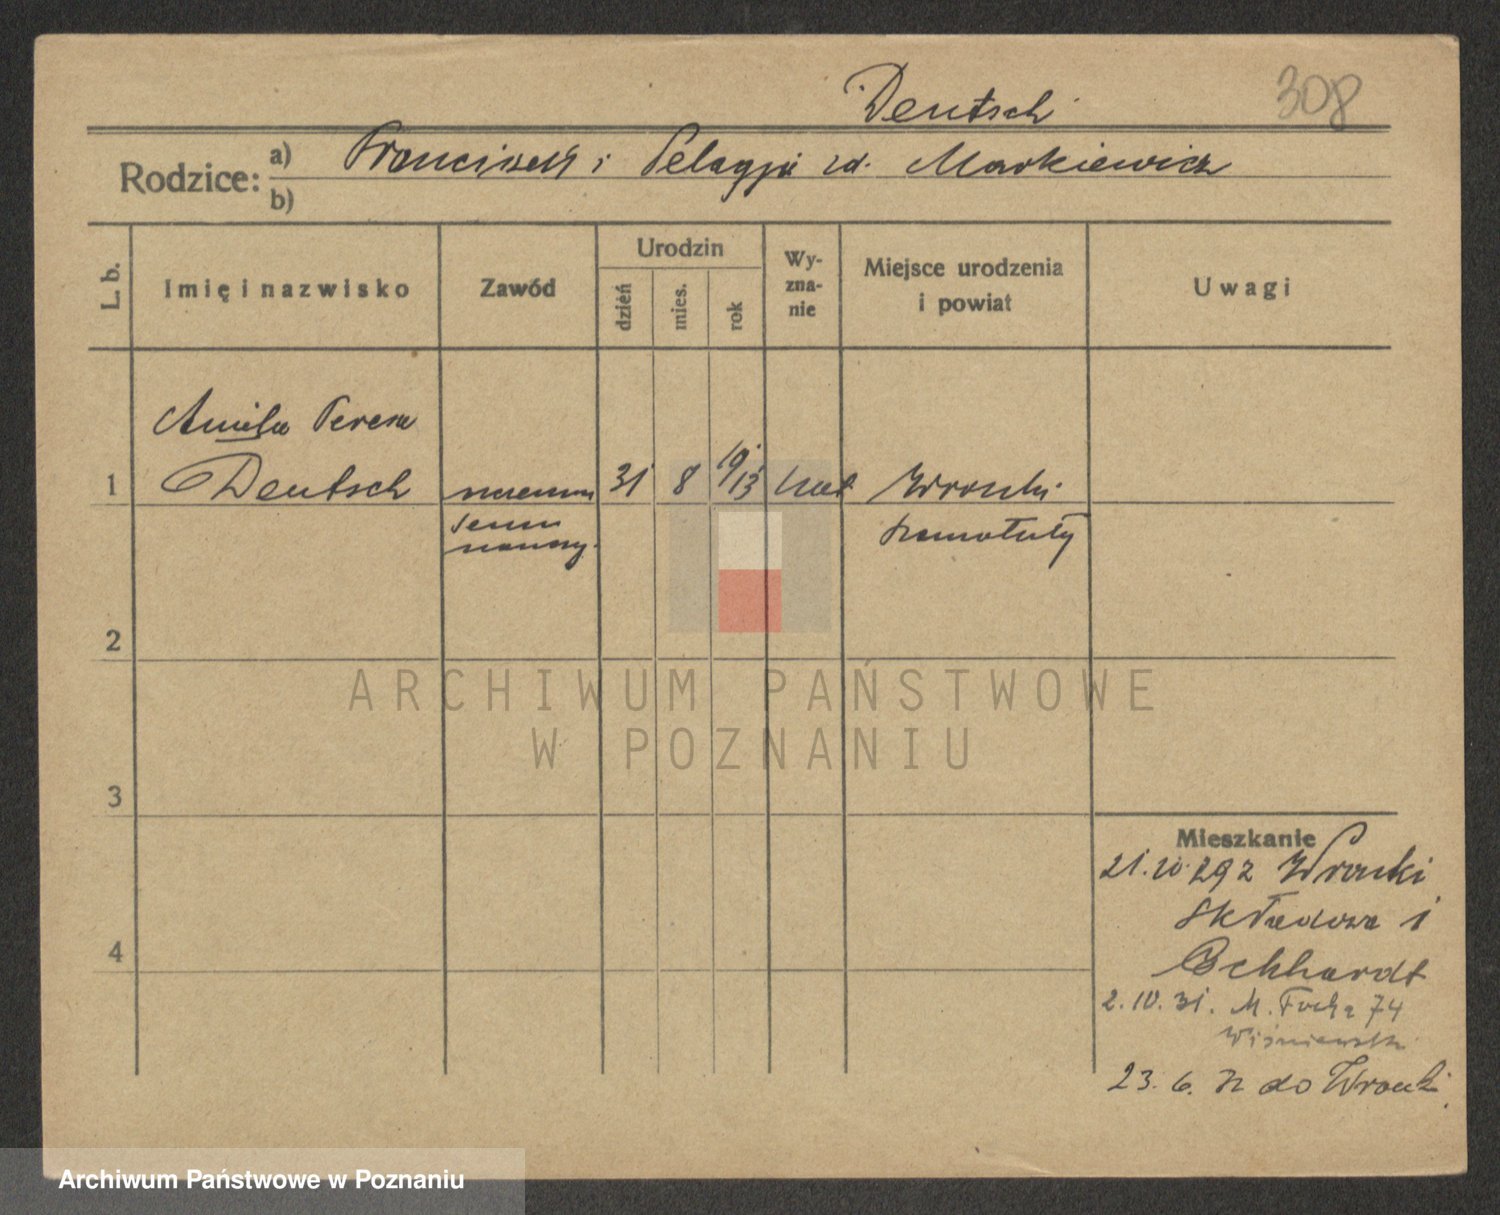 308
Deutsch
Rodzice: a) Franciszek i Pelagja zd. Markiewicz
b)
L. b.
Imię i nazwisko
Zawód
Urodzin
dzień
mies.
rok
Wy-
zna-
nie
Miejsce urodzenia
i powiat
Uwagi
Aniela Teresa
1 Deutsch 31 8 19/13 kat Wronki
Szamotuły
2
ARCHIWUM PAŃSTWOWE
W POZNANIU
3
4
Mieszkanie
21.10.29 z Wronki
Składowa 1
Eckhardt
2.10.31. M. Focha 74
Wiśniewski
23.6. do Wronki
Archiwum Państwowe w Poznaniu